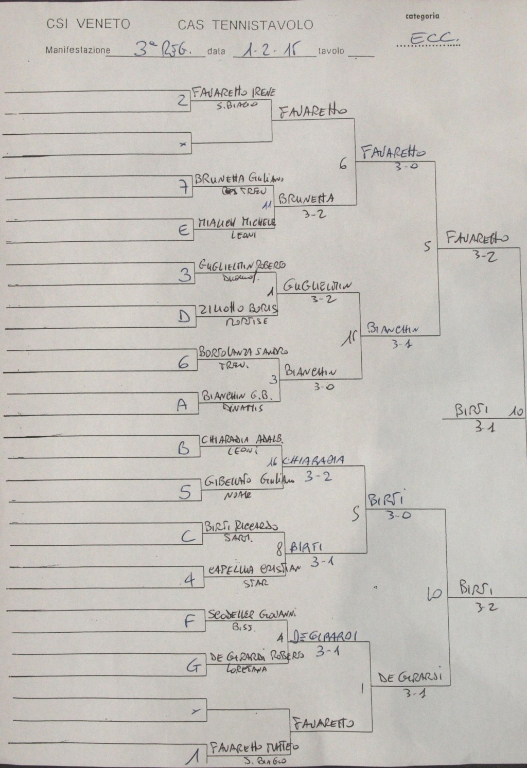 CSI VENETO CAS TENNISTAVOLO categoria
Manifestazione 3ª REG. data 1-2-15 tavolo
ECC.
2 FAVARETTO IRENE
S. BIAGIO
FAVARETTO
*
6 FAVARETTO
3-0
7 BRUNETTA GIULIANO
TREV
11 BRUNETTA
3-2
E MIALICH MICHELE
LEONI
5 FAVARETTO
3-2
3 GUGLIELMIN ROBERTO
1 GUGLIELMIN
3-2
D ZILIOTTO BORIS
MORTISE
15 BIANCHIN
3-1
6 BORTOLANZA SANDRO
TREV.
3 BIANCHIN
3-0
A BIANCHIN G.B.
DYNAMIS
BIRTI 10
3-1
B CHIARADIA ADALB.
LEONI
16 CHIARADIA
3-2
5 GIBELLATO GIULIANO
NOALE
5 BIRTI
3-0
C BIRTI RICCARDO
SARM.
8 BIRTI
3-1
4 CAPELLINA CRISTIAN
STAR
10 BIRTI
3-2
F SCODELLER GIOVANNI
BISS.
4 DE GIRARDI
3-1
G DE GIRARDI ROBERTO
LORETANA
1 DE GIRARDI
3-1
*
FAVARETTO
1 FAVARETTO MATTEO
S. BIAGIO